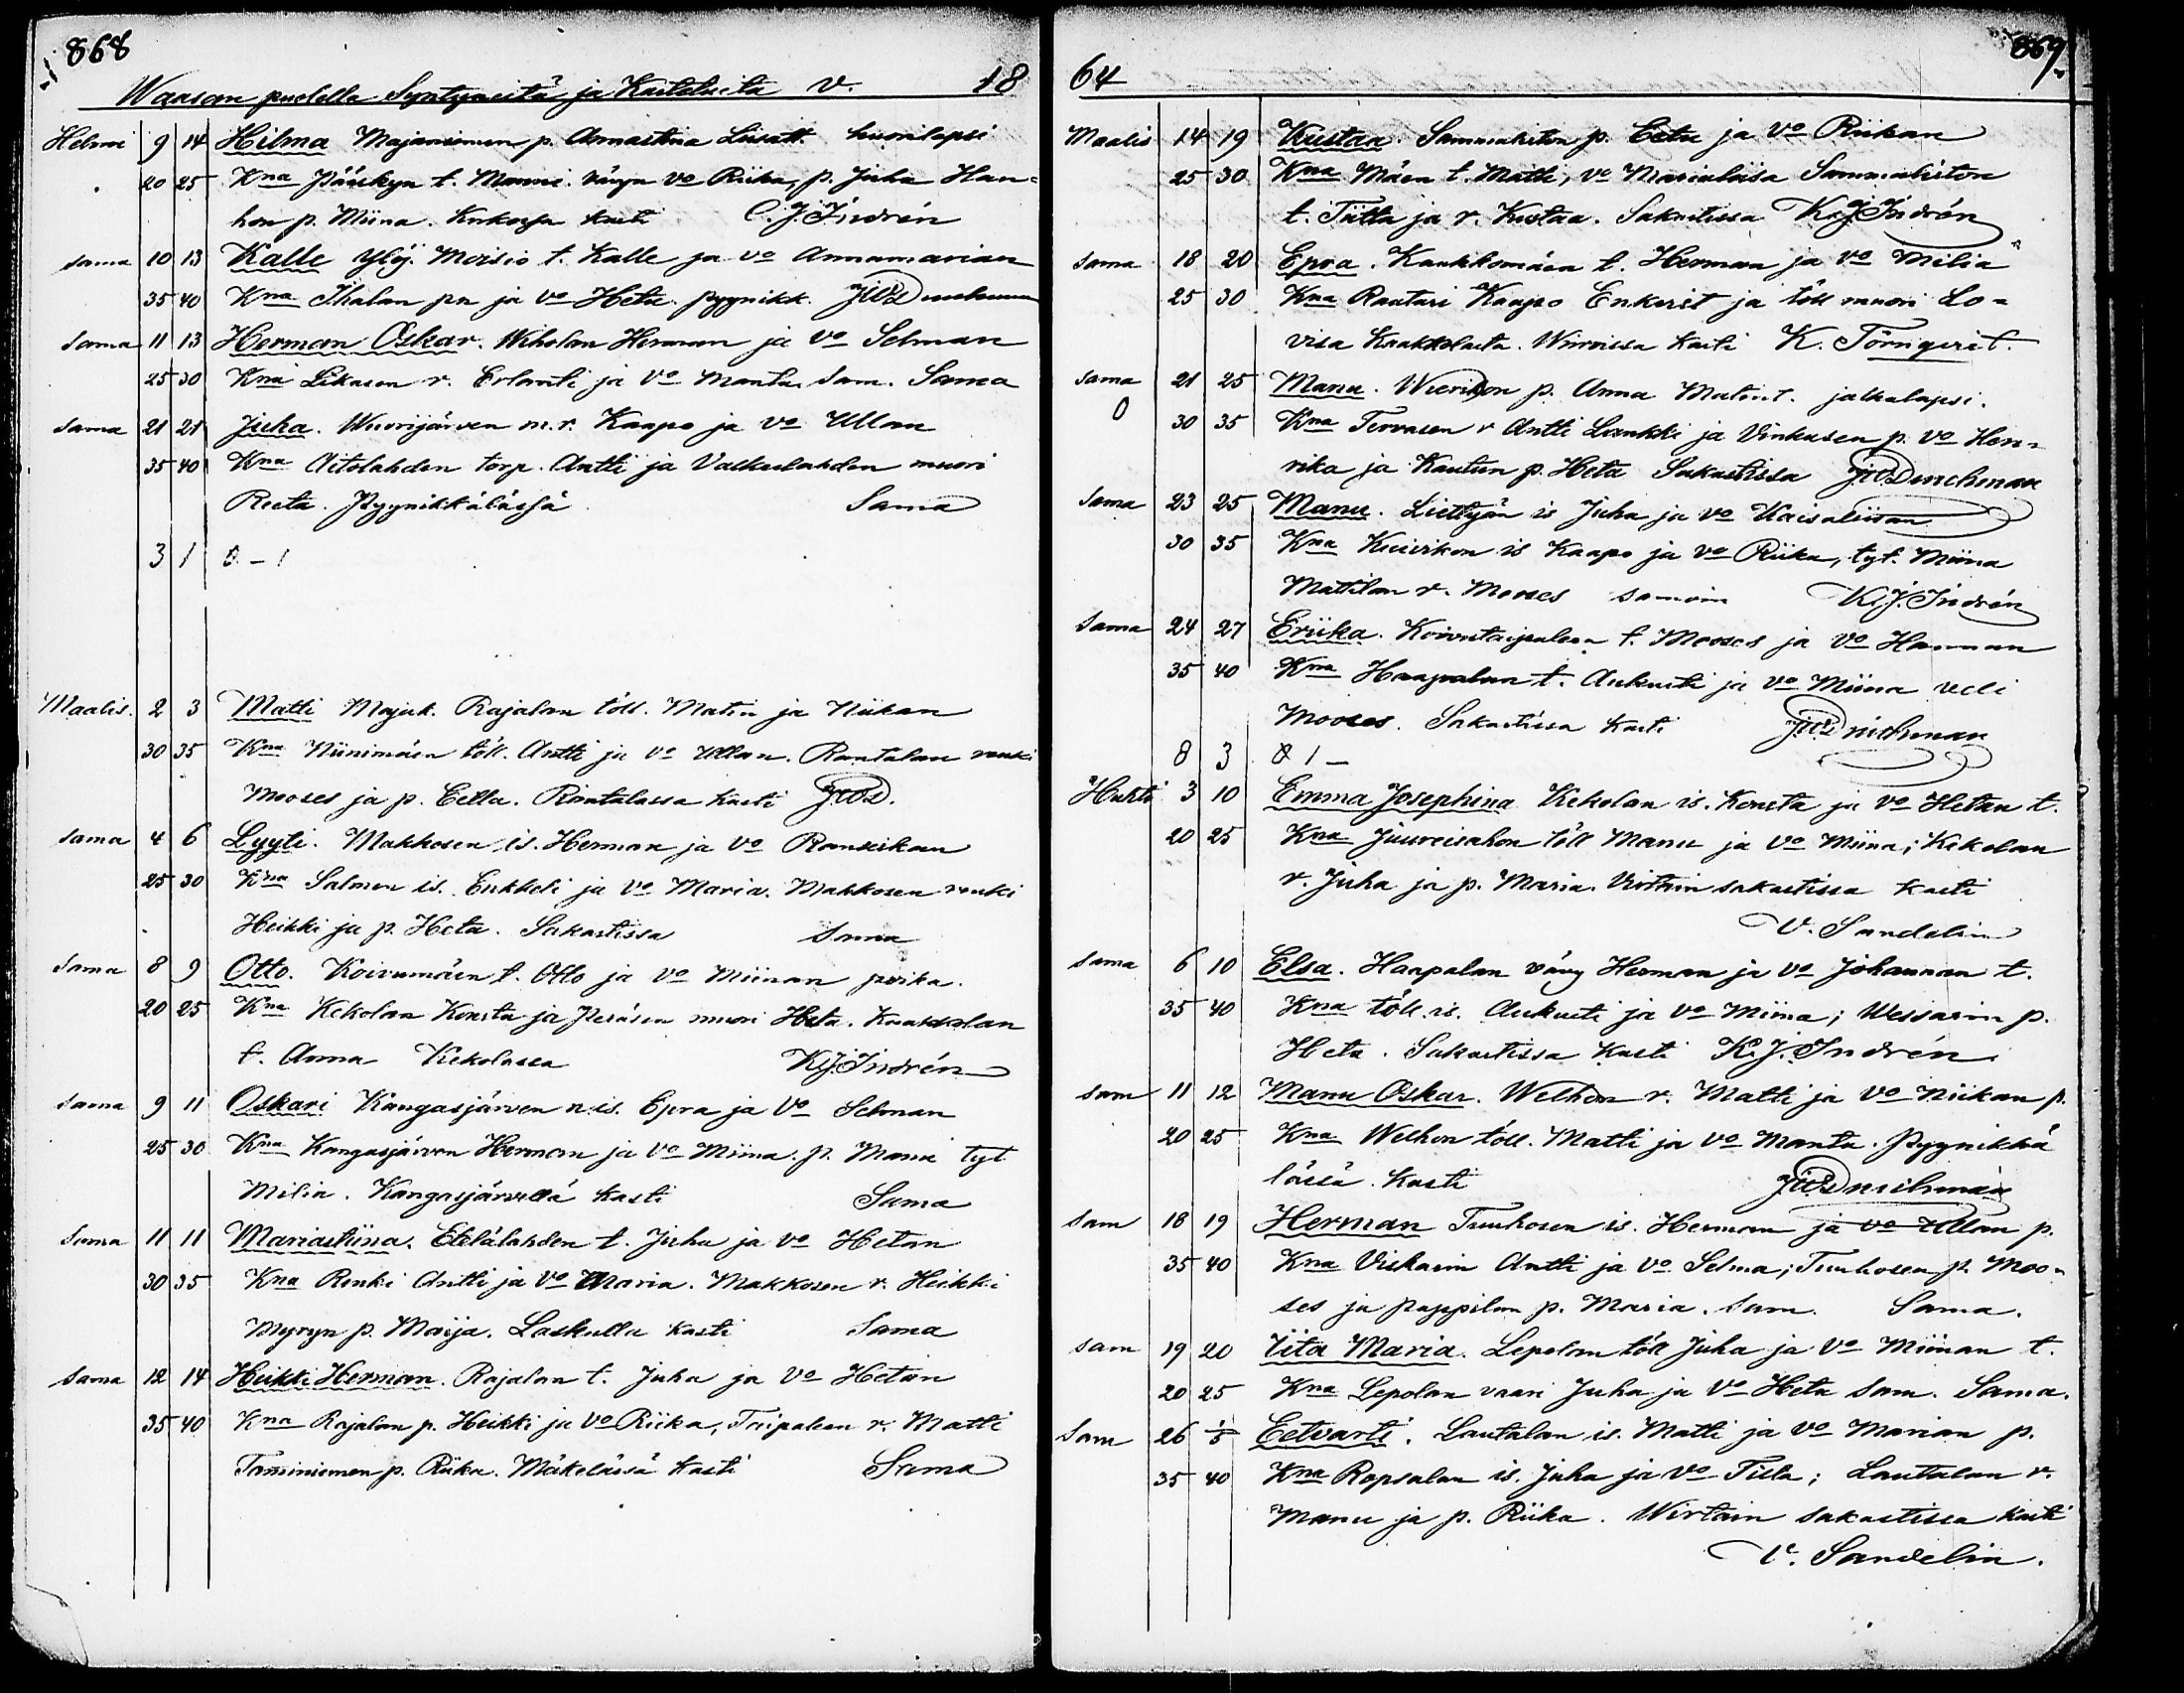 868
Waasan puolella Syntyneitä ja Kastetuita v. 18
Helmi 9 14 Hilma Majaniemen p. Annastina Liisatt. huorilapsi
20 25 Kna Pääskyn t. Manni. väyn vo Riika, p. Juha Han=
hon p. Miina. kasti C.J. Indrén
sama 10 13 Kalle Ylöj. Moisio t. Kalle ja vo Annamarian
35 40 Kna Ihalan pn ja vo Heta. pyynikk.
sama 11 13 Herman Oskar. Wiholan Herman ja vo Selman
25 30 Kna Likasen r. Erlanti ja vo Manta. Sam. Sama
sama 21 21 Juha. Wuorijärven m.r. Kaapo ja vo Ullan
35 40 Kna Aitolahden torp. Antti ja Valkealahden muori
Reeta. Pyynikkälässä Sama
3 1 0 – 1
Maalis. 2 3 Matti Majuk. Rajalan töll. Matin ja Riikan
30 35 Kna Niinimäen töll. Antti ja vo Ullan. Rantalan renki
Mooses ja p. Eella. Rantalassa kasti
sama 4 6 Lyyti. Makkosen is. Herman ja vo Ranssikan
25 30 Kna Salmen is. Enkkeli ja vo Maria. Makkosen renki
Heikki ja p. Heta. Sakastissa Sama
Sama 8 9 Otto. Koivumäen t. Otto ja vo Miinan poika.
20 25 Kna Kekolan Konsta ja Peräsen muori Heta. Kaakkolan
t. Anna Kekolassa K.J. Indrén
sama 9 11 Oskari Kangasjärven n.is. Epra ja vo Selman
25 30 Kna Kangasjärven Herman ja vo Miina. p. Manu tyt
Milia. Kangasjärvellä kasti Sama
Sama 11 11 Mariastiina. Etelälahden t. Juha ja vo Hetan
30 35 Kna Renki Antti ja vo Maria. Makkosen r. Heikki
Myryn p. Maija. Laskulla kasti Sama
Sama 12 14 Heikki Herman. Rajalan t. Juha ja vo Hetan
35 40 Kna Rajalan p. Heikki ja vo Riika, Taipaleen r. Matti
Taminiemen p. Riika. Mäkelässä kasti Sama
64 869
Maalis 14 19 Kustaa. Sammaliston p. Eetu ja vo Riikan
25 30 Kna Mäen t. Matti, vo Marialiisa Sammaliston
t. Tiilta ja r. Kustaa. Sakastissa K.J. Indrén
sama 18 20 Epra. Kaakkomäen t. Herman ja vo Milia n
25 30 Kna Rautari Kaapo Enkvist ja töll muori Lo=
visa Kaakkolasta. Wirroissa kasti K. Törnqvist.
sama 21 25 Manu. Wierikon p. Anna Matint. jalkalapsi.
0 30 35 Kna Tervasen r Antti Lankki ja Vinkasen p. vo Hen=
rika ja Kautun p. Heta Sakastissa
Sama 23 25 Manu. Liettyän is Juha ja vo Kaisaliisan
30 35 Kna Kuivikon is Kaapo ja vo Riika, tyt. Miina
Mattilan r. Mooses samoin K.J. Indrén
Sama 24 27 Eriika. Koivutaipaleen t. Mooses ja vo Hannan
35 40 Kna Haapalan t. Aukusti ja vo Miina veli
Mooses. Sakastissa kasti
8 3 0 1 –
Huhti 3 10 Emma Josephina Kekolan is. Konsta ja vo Hetan t.
20 25 Kna Juureisahon töll Manu ja vo Miina; Kekolan
r. Juha ja p. Maria. Virtain sakastissa kasti
V. Sandelin
sama 6 10 Elsa. Haapalan vävy Herman ja vo Johannan t.
35 40 Kna töll. is. Aukusti ja vo Miina; Wessarin p.
Heta. Sakastissa kasti K.J. Indrén.
sam 11 12 Manu Oskar. Welhon r. Matti ja vo Riikan p.
20 25 Kna Welhon töll. Matti ja vo Manta. Pyynikkä
lässä. kasti
Sam 18 19 Herman Tuuhosen is. Herman ja vo Ullan p.
35 40 Kna Viskarin Antti ja vo Selma; Tuuhosen p. Moo=
ses ja pappilan p. Maria. Sam. Sama.
sam 19 20 Iita Maria. Lepolan töll Juha ja vo Miinan t.
20 25 Kna Lepolan vaari Juha ja vo Heta Sam. Sama.
Sam 26 1/5 Eetvarti. Lautalan is. Matti ja vo Marian p.
35 40 Kna Rapsalan is. Juha ja vo Tilta; Lautalan r.
Manu ja p. Riika. Wirtain sakastissa kasti
V. Sandelin.